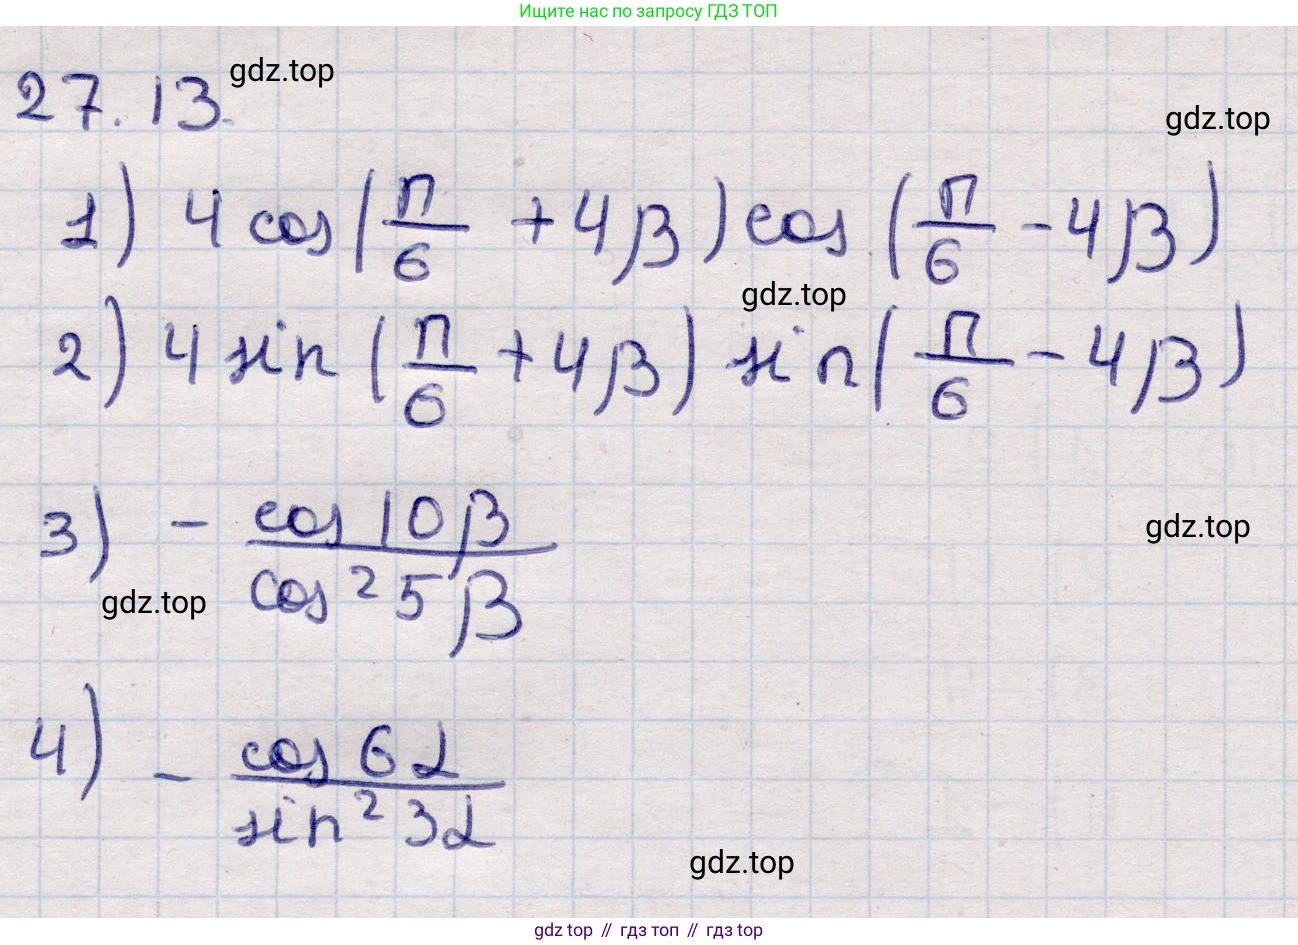 Ищите нас по запросу ГДЗ ТОП
27.13. gdz.top
gdz.top
1) 4 cos(π/6 + 4β) cos(π/6 - 4β)
gdz.top
2) 4 sin(π/6 + 4β) sin(π/6 - 4β)
3) - cos 10β / cos² 5β
gdz.top
gdz.top
4) - cos 6α / sin² 3α
gdz.top
gdz top // гдз топ // гдз top